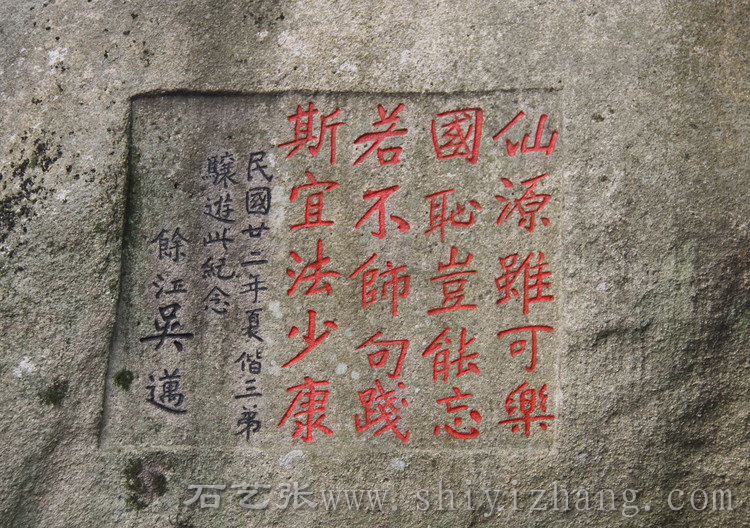 仙源雖可樂
國恥豈能忘
若不師句踐
斯宜法少康
民國廿二年夏偕三弟
驤遊此紀念
餘江吳邁
石艺张www.shiyizhang.com